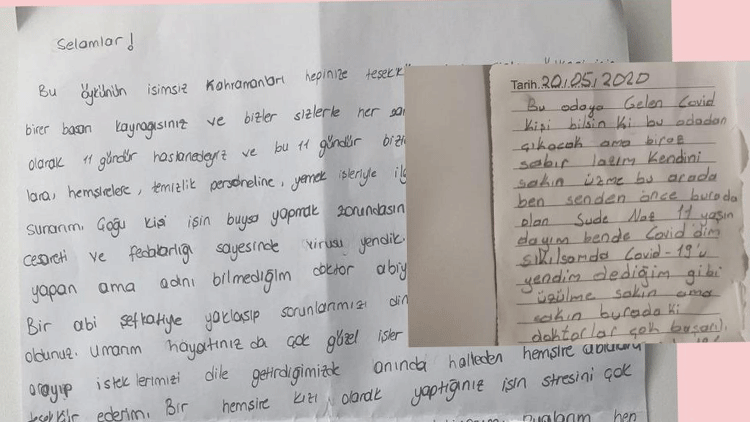 Selamlar!
Bu öykünün isimsiz kahramanları hepinize
birer başarı kaynağısınız ve bizler sizlerle her
olarak 11 gündür hastanedeyiz ve bu 11 gündür
lara, hemşirelere, temizlik personeline, yemek işleriyle
sunarım. Çoğu kişi işin buysa yapmak zorundasın
cesareti ve fedakarlığı sayesinde virüsü yendik.
yapan ama adını bilmediğim doktor
Bir abi şefkatiyle yaklaşıp sorunlarımızı
oldunuz. Umarım hayatınızda çok güzel işler
arayıp isteklerimizi dile getirdiğimizde anında halleden hemşire
ederim. Bir hemşire kızı olarak yaptığınız işin stresini çok
Tarih. 20.05/2020
Bu odaya Gelen Covid
kişi bilsin ki bu odadan
çıkacak ama biraz
sabır lazım kendini
sakın üzme bu arada
ben senden önce burada
olan Sude Naz 11 yaşın
dayım bende Covid dim
sıkılsamda Covid-19'u
yendim dediğim gibi
üzülme sakın ama
sakın burada ki
doktorlar çok başarı